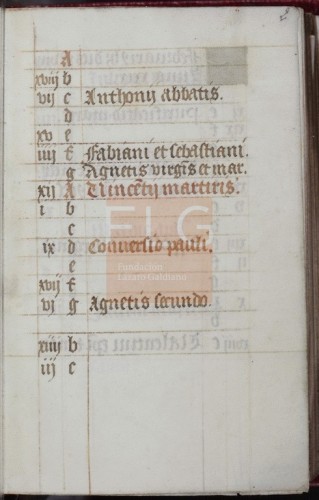 A
xviij b
vij c Anthonij abbatis.
d
xv e
iiij f Fabiani et sebastiani.
g Agnetis virgīs et mar.
xij A Vincētij martiris.
i b
c
ix d Conversio pauli.
e
xvij f
vj g Agnetis secundo.
A
xiiij b
iij c
FLG
Fundación
Lázaro Galdiano